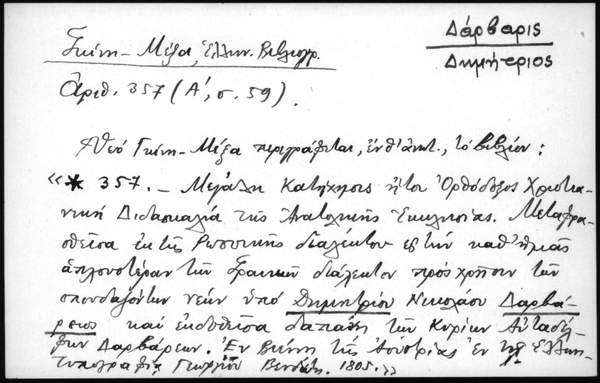 Δάρβαρις
Δημήτριος
Γκίνη - Μέξα, Ἑλλην. Βιβλιογρ.
Ἀριθ. 357 (Α', σ. 59).
Ὑπό Γκίνη - Μέξα περιγράφεται, ἐνθ' ἀνωτ., τό βιβλίον:
«* 357. - Μεγάλη Κατήχησις ἤτοι Ὀρθόδοξος Χριστια-
νική Διδασκαλία τῆς Ἀνατολικῆς Ἐκκλησίας. Μεταφρα-
σθεῖσα ἐκ τῆς Ρωσσικῆς διαλέκτου εἰς τήν καθ' ἡμᾶς
ἁπλουστέραν τῶν Γραικῶν διάλεκτον πρός χρῆσιν τῶν
σπουδαζόντων νέων ὑπό Δημητρίου Νικολάου Δαρβά-
ρεως καί ἐκδοθεῖσα δαπάνῃ τῶν Κυρίων Αὐταδέλ-
φων Δαρβάρεων. Ἐν Βιέννῃ τῆς Ἀουστρίας Ἐν τῇ Ἑλλην.
Τυπογραφίᾳ Γεωργίου Βενδώτη. 1805.»